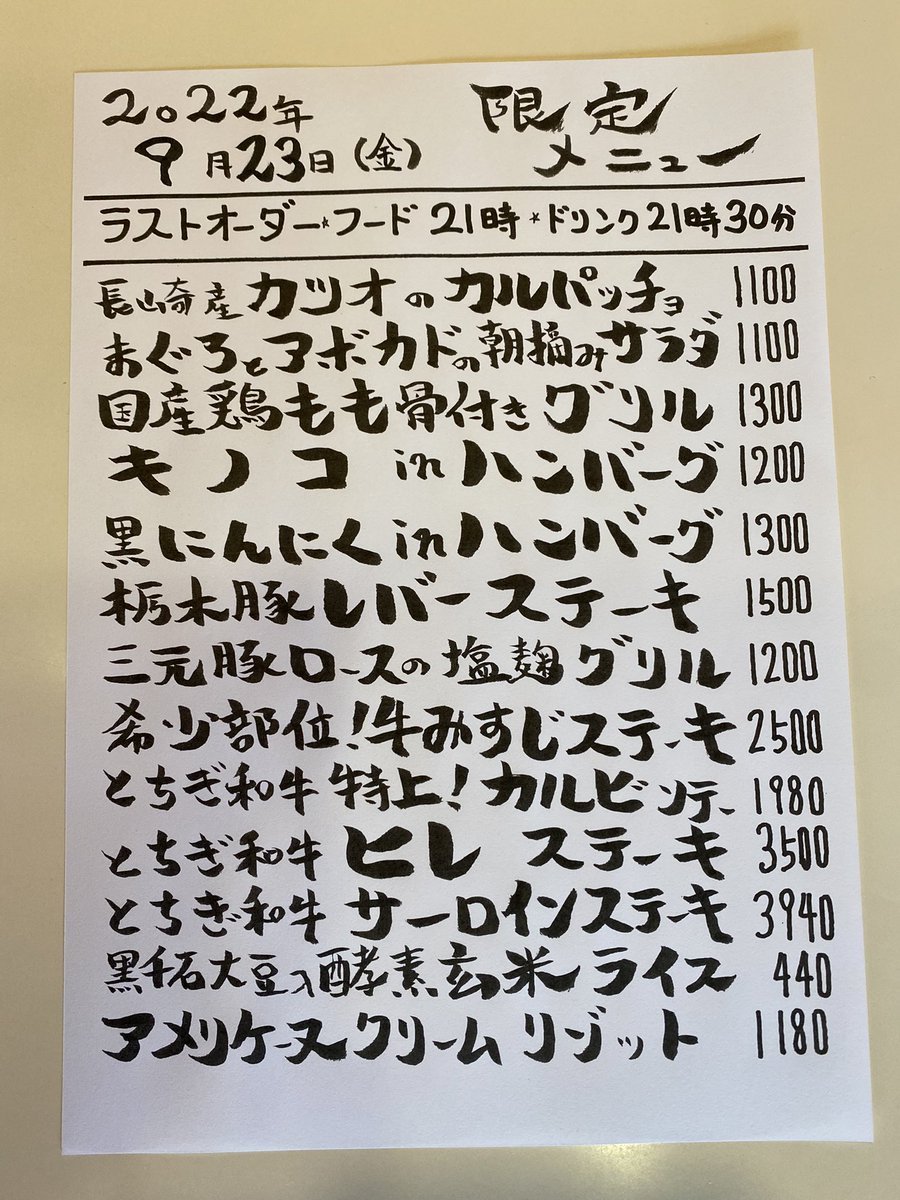 2022年
9月23日(金)
限定
メニュー
ラストオーダー★フード 21時 ★ドリンク21時30分
長崎産カツオのカルパッチョ 1100
まぐろとアボカドの朝摘みサラダ 1100
国産鶏もも骨付きグリル 1300
キノコinハンバーグ 1200
黒にんにくinハンバーグ 1300
栃木豚レバーステーキ 1500
三元豚ロースの塩麹グリル 1200
希少部位!牛みすじステーキ 2500
とちぎ和牛 特上!カルビソテー 1980
とちぎ和牛 ヒレ ステーキ 3500
とちぎ和牛 サーロインステーキ 3940
黒千石大豆入酵素玄米ライス 440
アメリケーヌクリームリゾット 1180